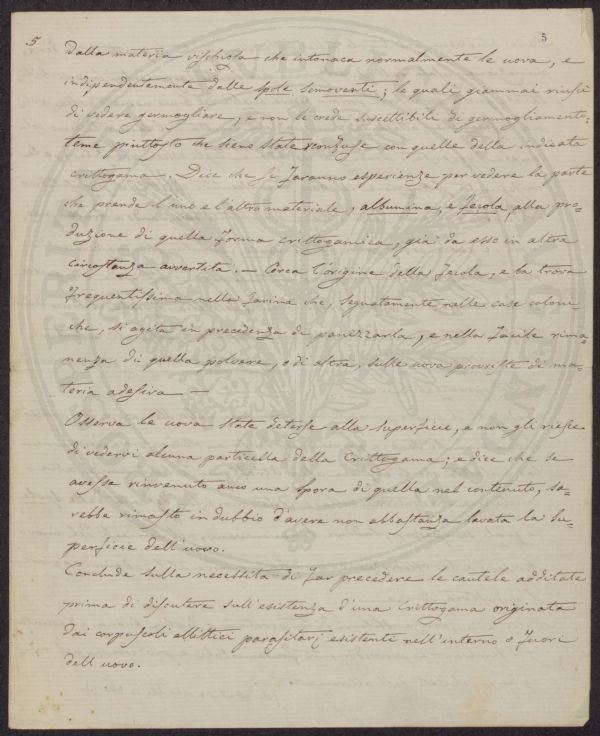 5
5
dalla materia vischiosa che intonaca normalmente le uova, e
indipendentemente dalle spole semoventi; le quali giammai riescì
di vedere germogliare, e non le crede suscettibili di germogliamento:
teme piuttosto che sieno state confuse con quelle della indicata
crittogama. Dice che si faranno esperienze per vedere la parte
che prende l'uno e l'altro materiale, albumina, e fecola, alla pro=
duzione di quella forma crittogamica, già da esso in altra
circostanza avvertita. — Cerca l'origine della fecola, e la trova
frequentissima nella farina che, segnatamente nelle case coloni=
che, si agita in precedenza di panizzarla, e nella facile rima=
nenza di quella polvere, o di altra, sulle uova provviste di ma=
teria adesiva —
Osserva le uova state deterse alla superficie, e non gli riesce
di vedervi alcuna particella della Crittogama; e dice che se
avesse rinvenuto anco una spora di quella nel contenuto, sa=
rebbe rimasto in dubbio d'avere non abbastanza lavata la su=
perficie dell'uovo.
Conclude sulla necessità di far precedere le cautele additate
prima di discutere sull'esistenza d'una Crittogama originata
dai corpuscoli ellittici parasitarj esistenti nell'interno o fuori
dell'uovo.